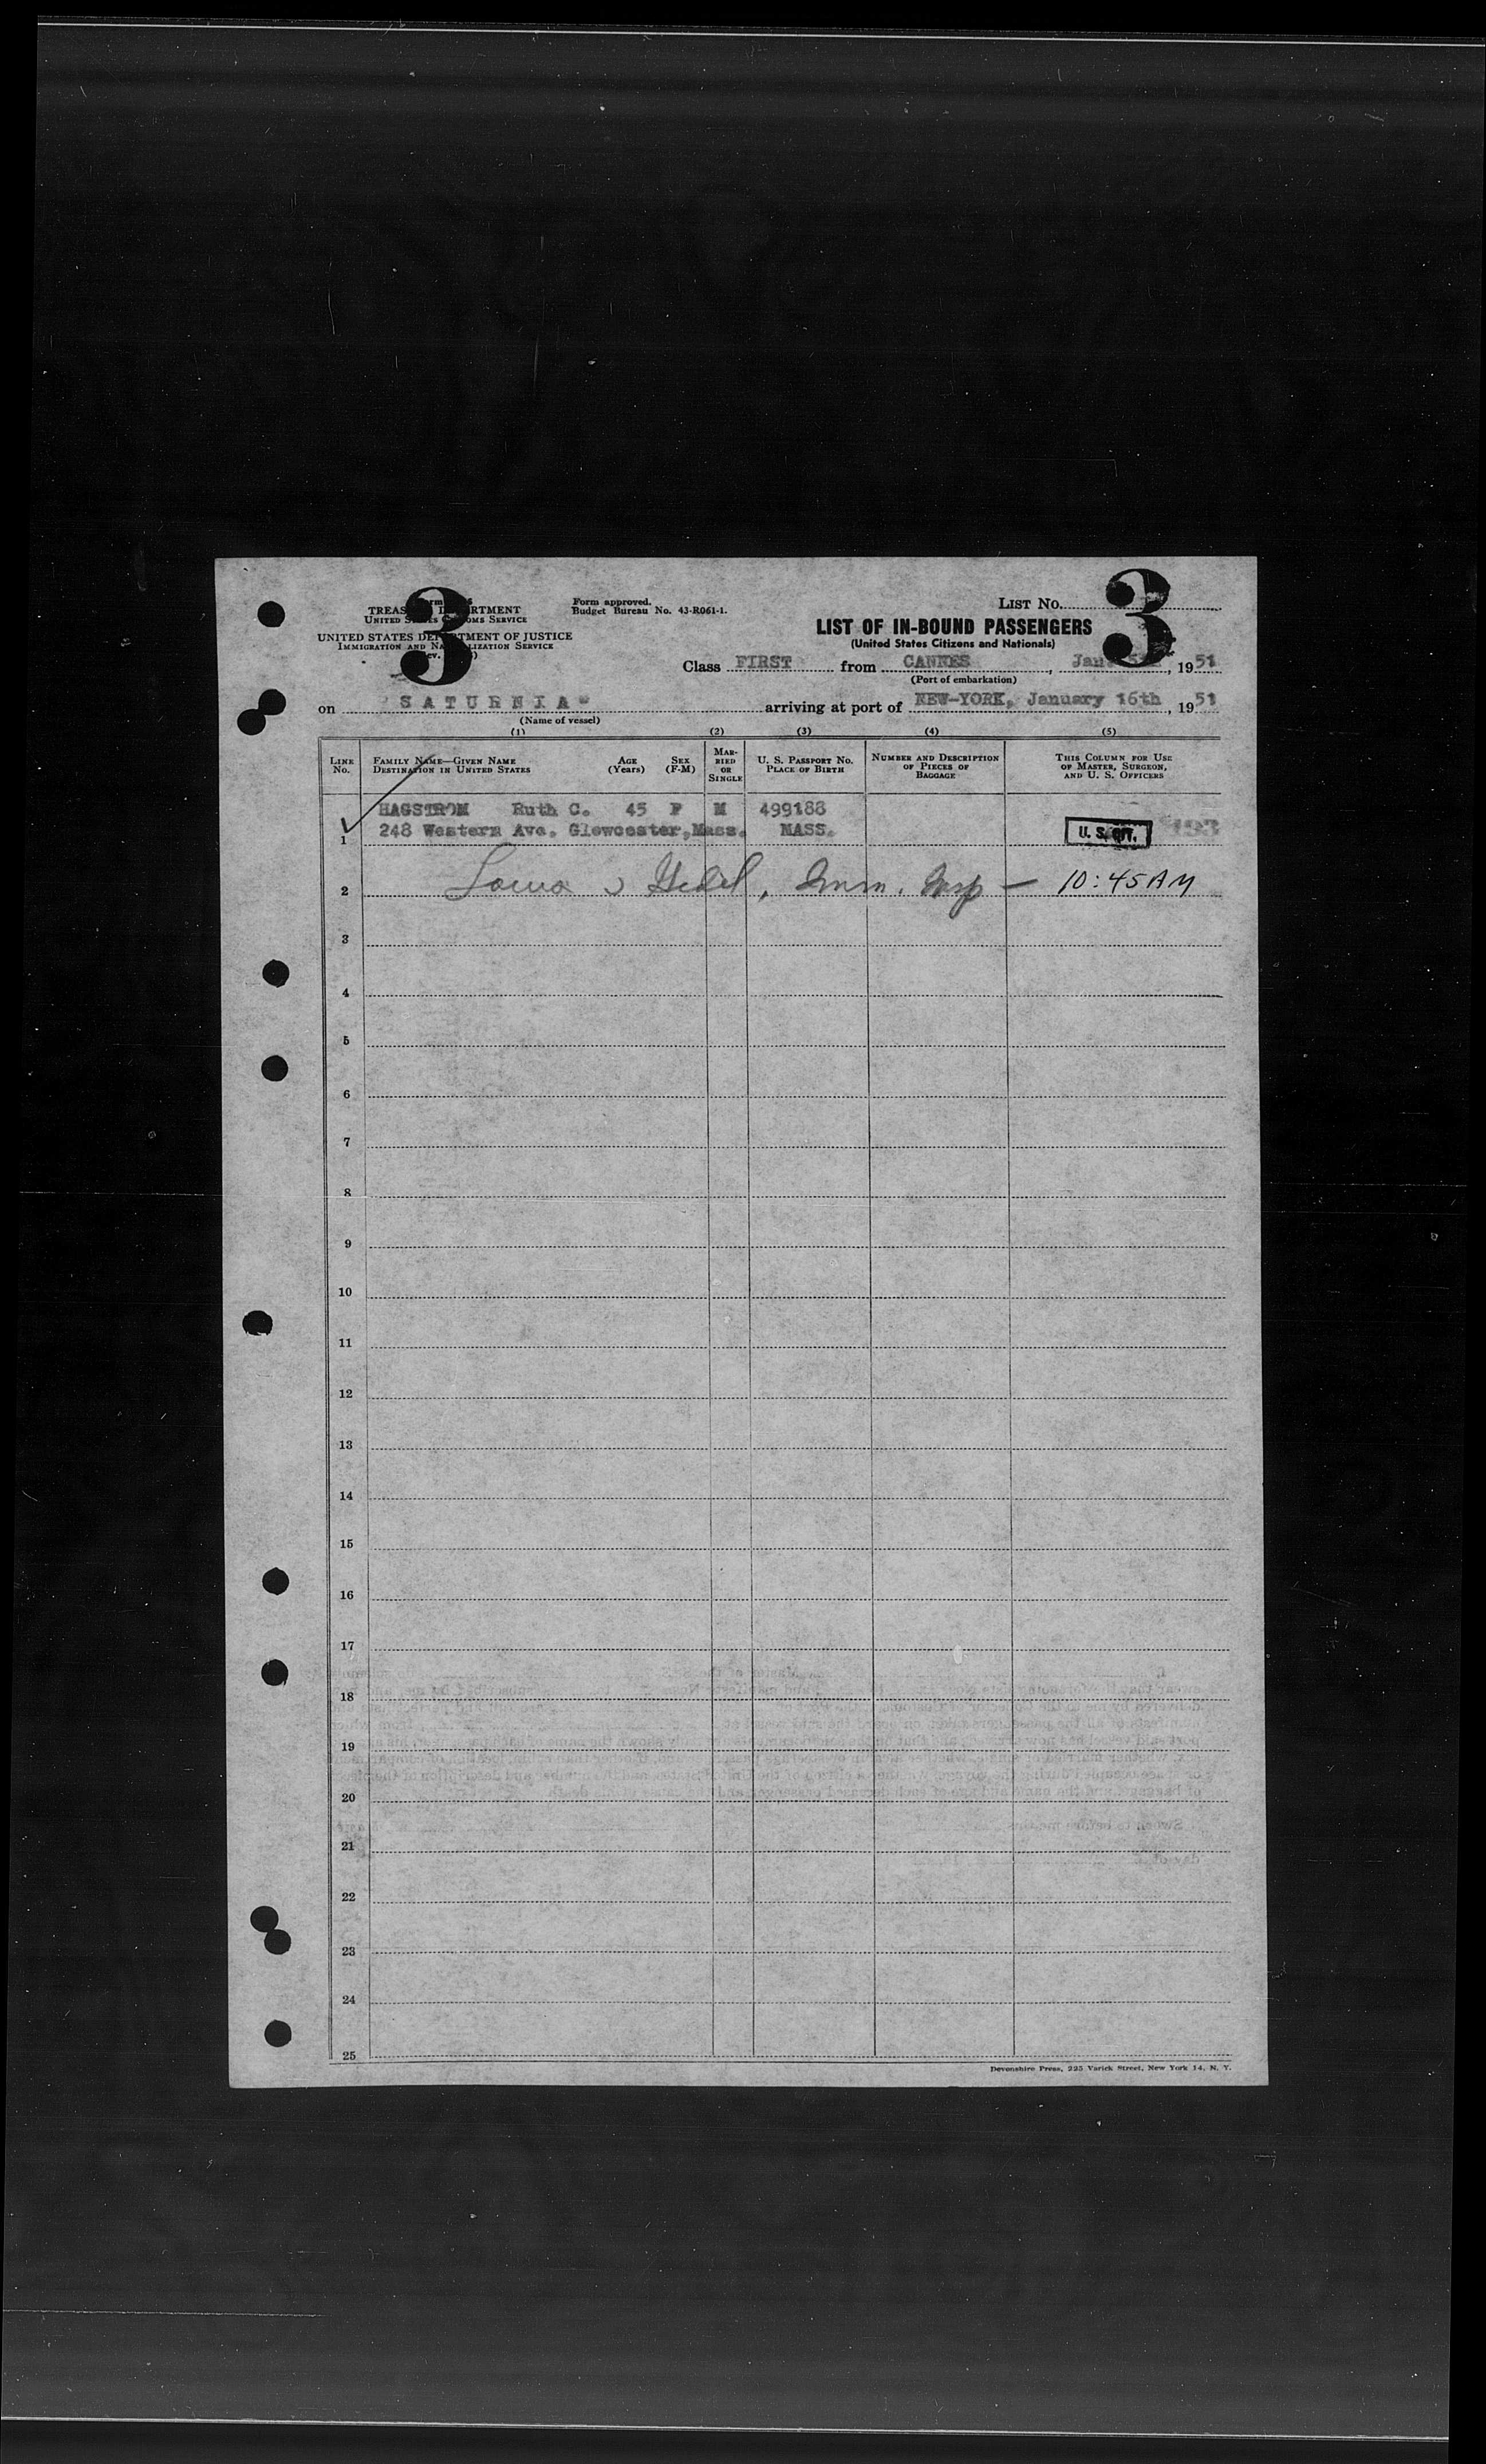 3
3
TREASURY DEPARTMENT
UNITED STATES CUSTOMS SERVICE
UNITED STATES DEPARTMENT OF JUSTICE
IMMIGRATION AND NATURALIZATION SERVICE
Form approved.
Budget Bureau No. 43-R061-1.
LIST No.
LIST OF IN-BOUND PASSENGERS
(United States Citizens and Nationals)
Class FIRST from CANNES, Jan. , 1951
(Port of embarkation)
on "SATURNIA" arriving at port of NEW-YORK, January 16th, 1951
(Name of vessel)
(1) (2) (3) (4) (5)
LINE No. FAMILY NAME—GIVEN NAME DESTINATION IN UNITED STATES AGE (Years) SEX (F-M) MARRIED OR SINGLE U. S. PASSPORT No. PLACE OF BIRTH NUMBER AND DESCRIPTION OF PIECES OF BAGGAGE THIS COLUMN FOR USE OF MASTER, SURGEON, AND U. S. OFFICERS
HAGSTROM Ruth C. 45 F M 499188
1 248 Western Ave. Glowcester, Mass. MASS. U. S. CIT. 193
2 Imm. Insp — 10:45 AM
3
4
5
6
7
8
9
10
11
12
13
14
15
16
17
18
19
20
21
22
23
24
25
Devonshire Press, 225 Varick Street, New York 14, N. Y.